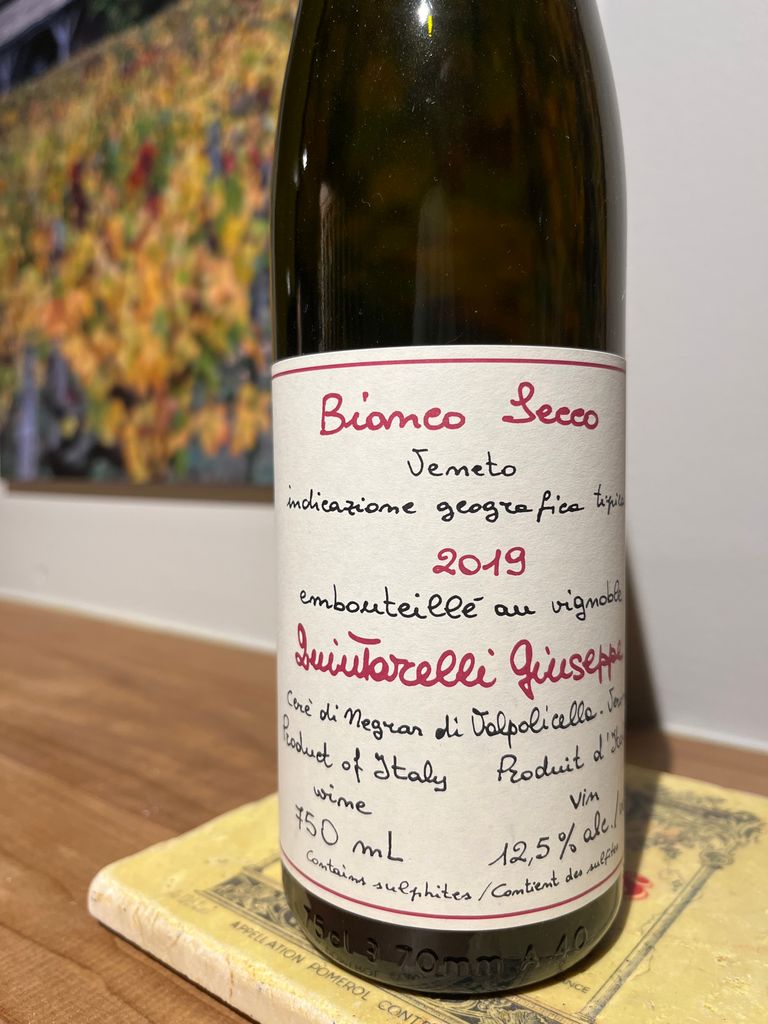 Bianco Secco
Veneto
indicazione geografica
2019
embouteillé au vignoble
Quintarelli Giuseppe
Cerè di Negrar di Valpolicella.
Product of Italy
wine
750 mL
Produit d'
vin
12,5% alc./
Contains sulphites / Contient des sulfites
75cl 3 70mm A 40
APPELLATION POMEROL